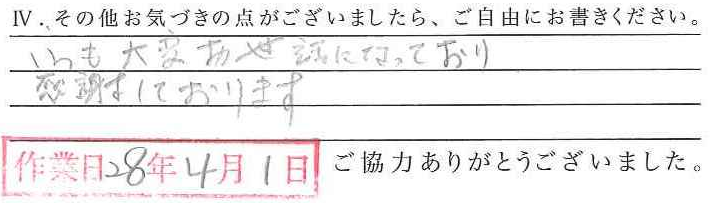 Ⅳ.その他お気づきの点がございましたら、ご自由にお書きください。
いつも大変お世話になっており
感謝しております
作業日28年4月1日 ご協力ありがとうございました。